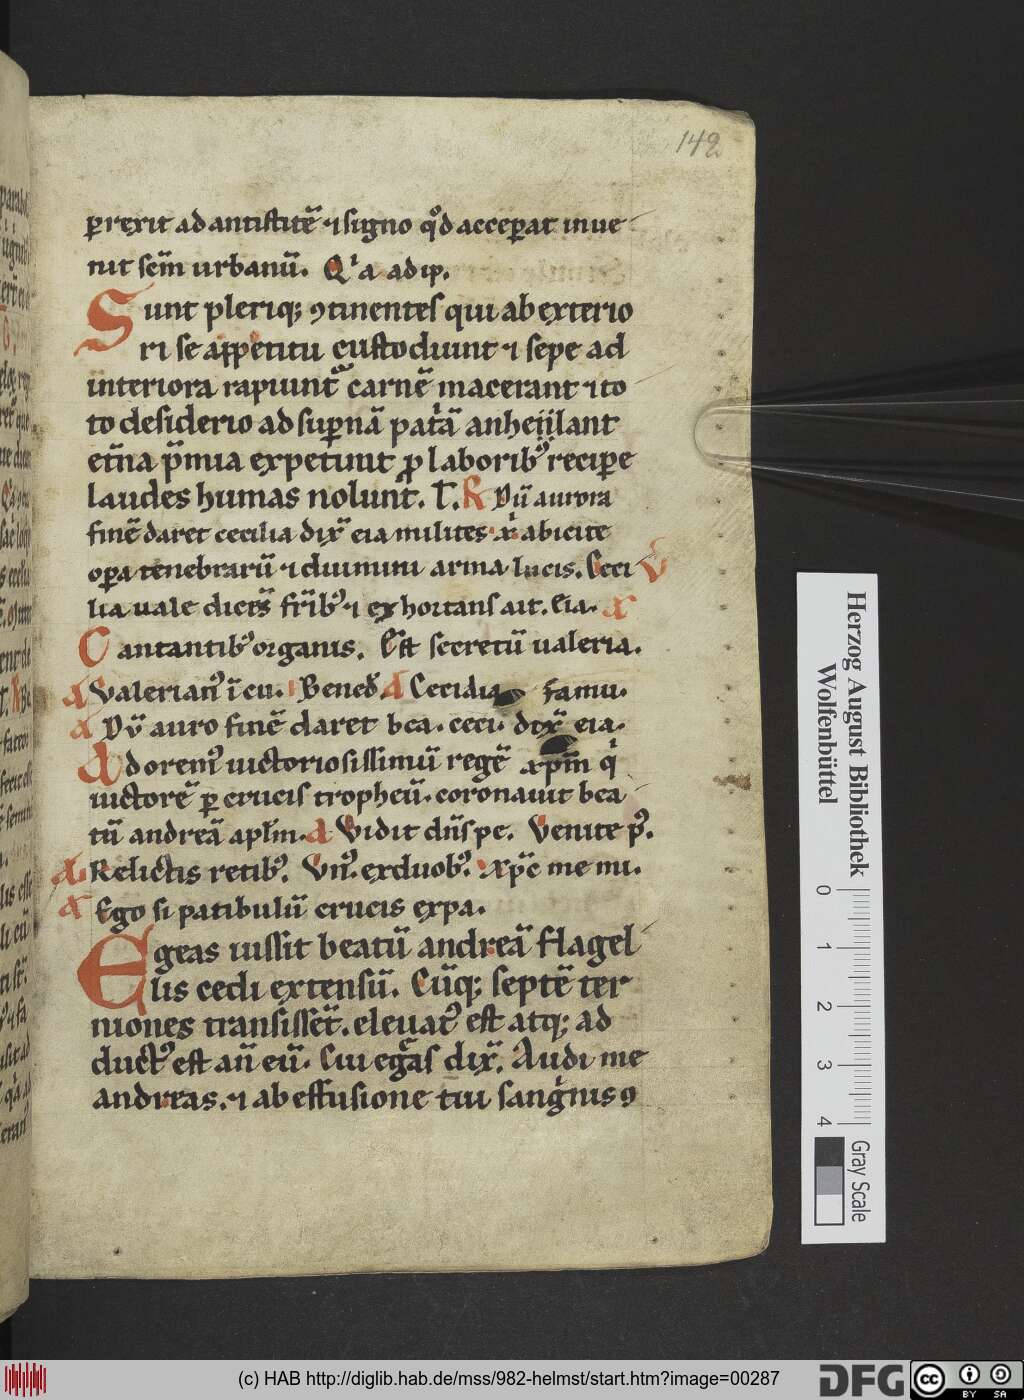 142
ꝑrexit ad antistitē ⁊ signo qͦd acceꝑat inue
nit scm̄ urbanū. Qͥa ad ip.
Sunt pleriqꝫ ꝯtinentes qui ab exterio
ri se appetitu custodiunt ⁊ sepe ad
interiora rapiunt᷑ carnē macerant ⁊ to
to desiderio ad suꝑnā patͥā anhelant
et̄na p̄mia expetunt ꝓ laboribꝰ reciꝑe
laudes humas nolunt. T. R Dū aurora
finē daret cecilia dix̄ eia milites xͥ abicite
oꝑa tenebrarū ⁊ duimini arma lucis. Ceci V
lia uale dicēs frībꝰ ⁊ exhortans ait. Eia. a
Cantantibꝰ organis. Est secretū ualeria.
a Valerianꝰ ī cu. Bened̄ a Cecilia famu.
a Dū auro finē daret bea. ceci. dix̄ eia.
Adoremꝰ uictoriosissimū regē xp̄m qͥ
uictorē ꝑ crucis tropheū. coronauit bea
tū andreā apl̄m. a Vidit dn̄s pe. Venite pꝰ.
a Relictis retibꝰ. Vnꝰ. ex duobꝰ. xp̄c me mi.
a Ego si patibulū crucis expa.
Egeas iussit beatū andreā flagel
lis cedi extensū. Cūqꝫ septē ter
niones transisset. eleuatꝰ est atqꝫ ad
ductꝰ est an̄ eū. Cui egeas dix̄. Audi me
andreas. ⁊ ab effusione tui sangͥnis ꝯ
Herzog August Bibliothek
Wolfenbüttel
0 1 2 3 4
Gray Scale
(c) HAB http://diglib.hab.de/mss/982-helmst/start.htm?image=00287
DFG
cc BY SA